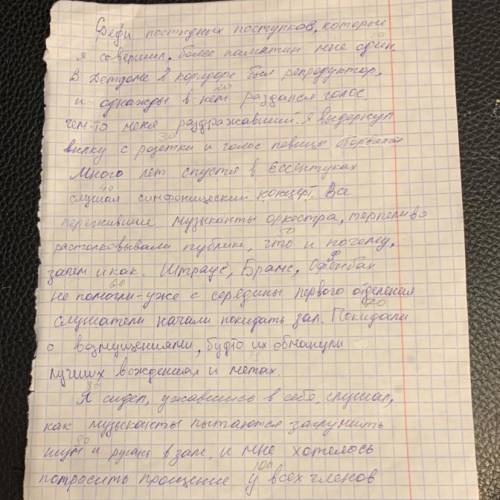 Среди постыдных поступков, которые
я совершил, более памятен мне один.
В детдоме в коридоре был репродуктор,
и однажды в нём раздался голос
20
чем-то меня раздражавший. Я выдернул
вилку с розетки и голос певицы оборвался
30
Много лет спустя в Ессентуках
слушал симфонический концерт. Все
40
пережившие музыканты оркестра, терпеливо
растолковывали публики, что и почему,
50
зачем и как. Штраус, Брамс, Офенбах
не помогли-уже с середины первого отделения
60
слушатели начали покидать зал. Покидали
70
с возмущениями, будто их обманули
лучших вождениях и метах.
Я сидел, ужавшись в себя, слушал,
80
как музыканты пытаются заглушить
шум и ругань в зал. и мне хотелось
90
попросить прощение у всех членов
100